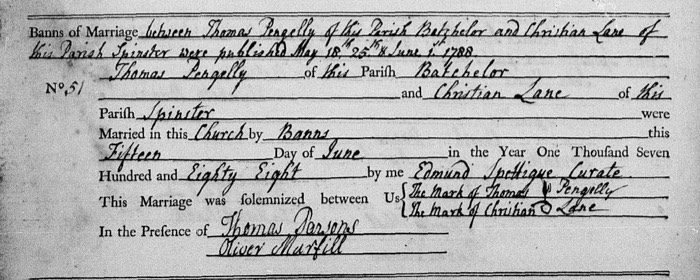 Banns of Marriage between Thomas Pengelly of this Parish Batchelor and Christian Lane of
this Parish Spinster were published May 18th 25th & June 1st 1788
Thomas Pengelly of this Parish Batchelor
No. 51 and Christian Lane of this
Parish Spinster were
Married in this Church by Banns this
Fifteen Day of June in the Year One Thousand Seven
Hundred and Eighty Eight by me Edmund Spettigue Curate
This Marriage was solemnized between Us { The Mark of Thomas Pengelly
The Mark of Christian Lane
In the Presence of Thomas Parsons
Oliver